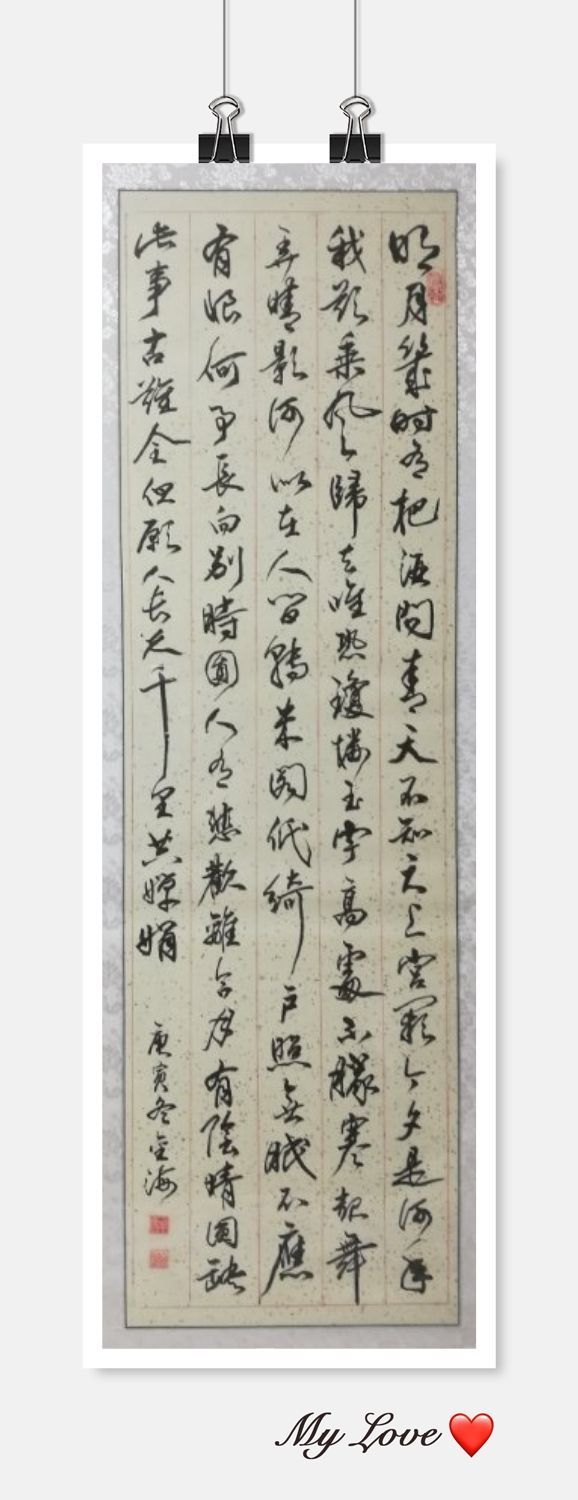 明月幾时有把酒问青天不知天上宫阙今夕是何年
我欲乘风歸去唯恐瓊楼玉宇高處不勝寒起舞
弄晴影何似在人间轉朱阁低綺户照無眠不應
有恨何事長向别時圓人有悲歡離合月有陰晴圓缺
此事古難全但願人长久千里共嬋娟
庚寅冬金海
My Love ❤️